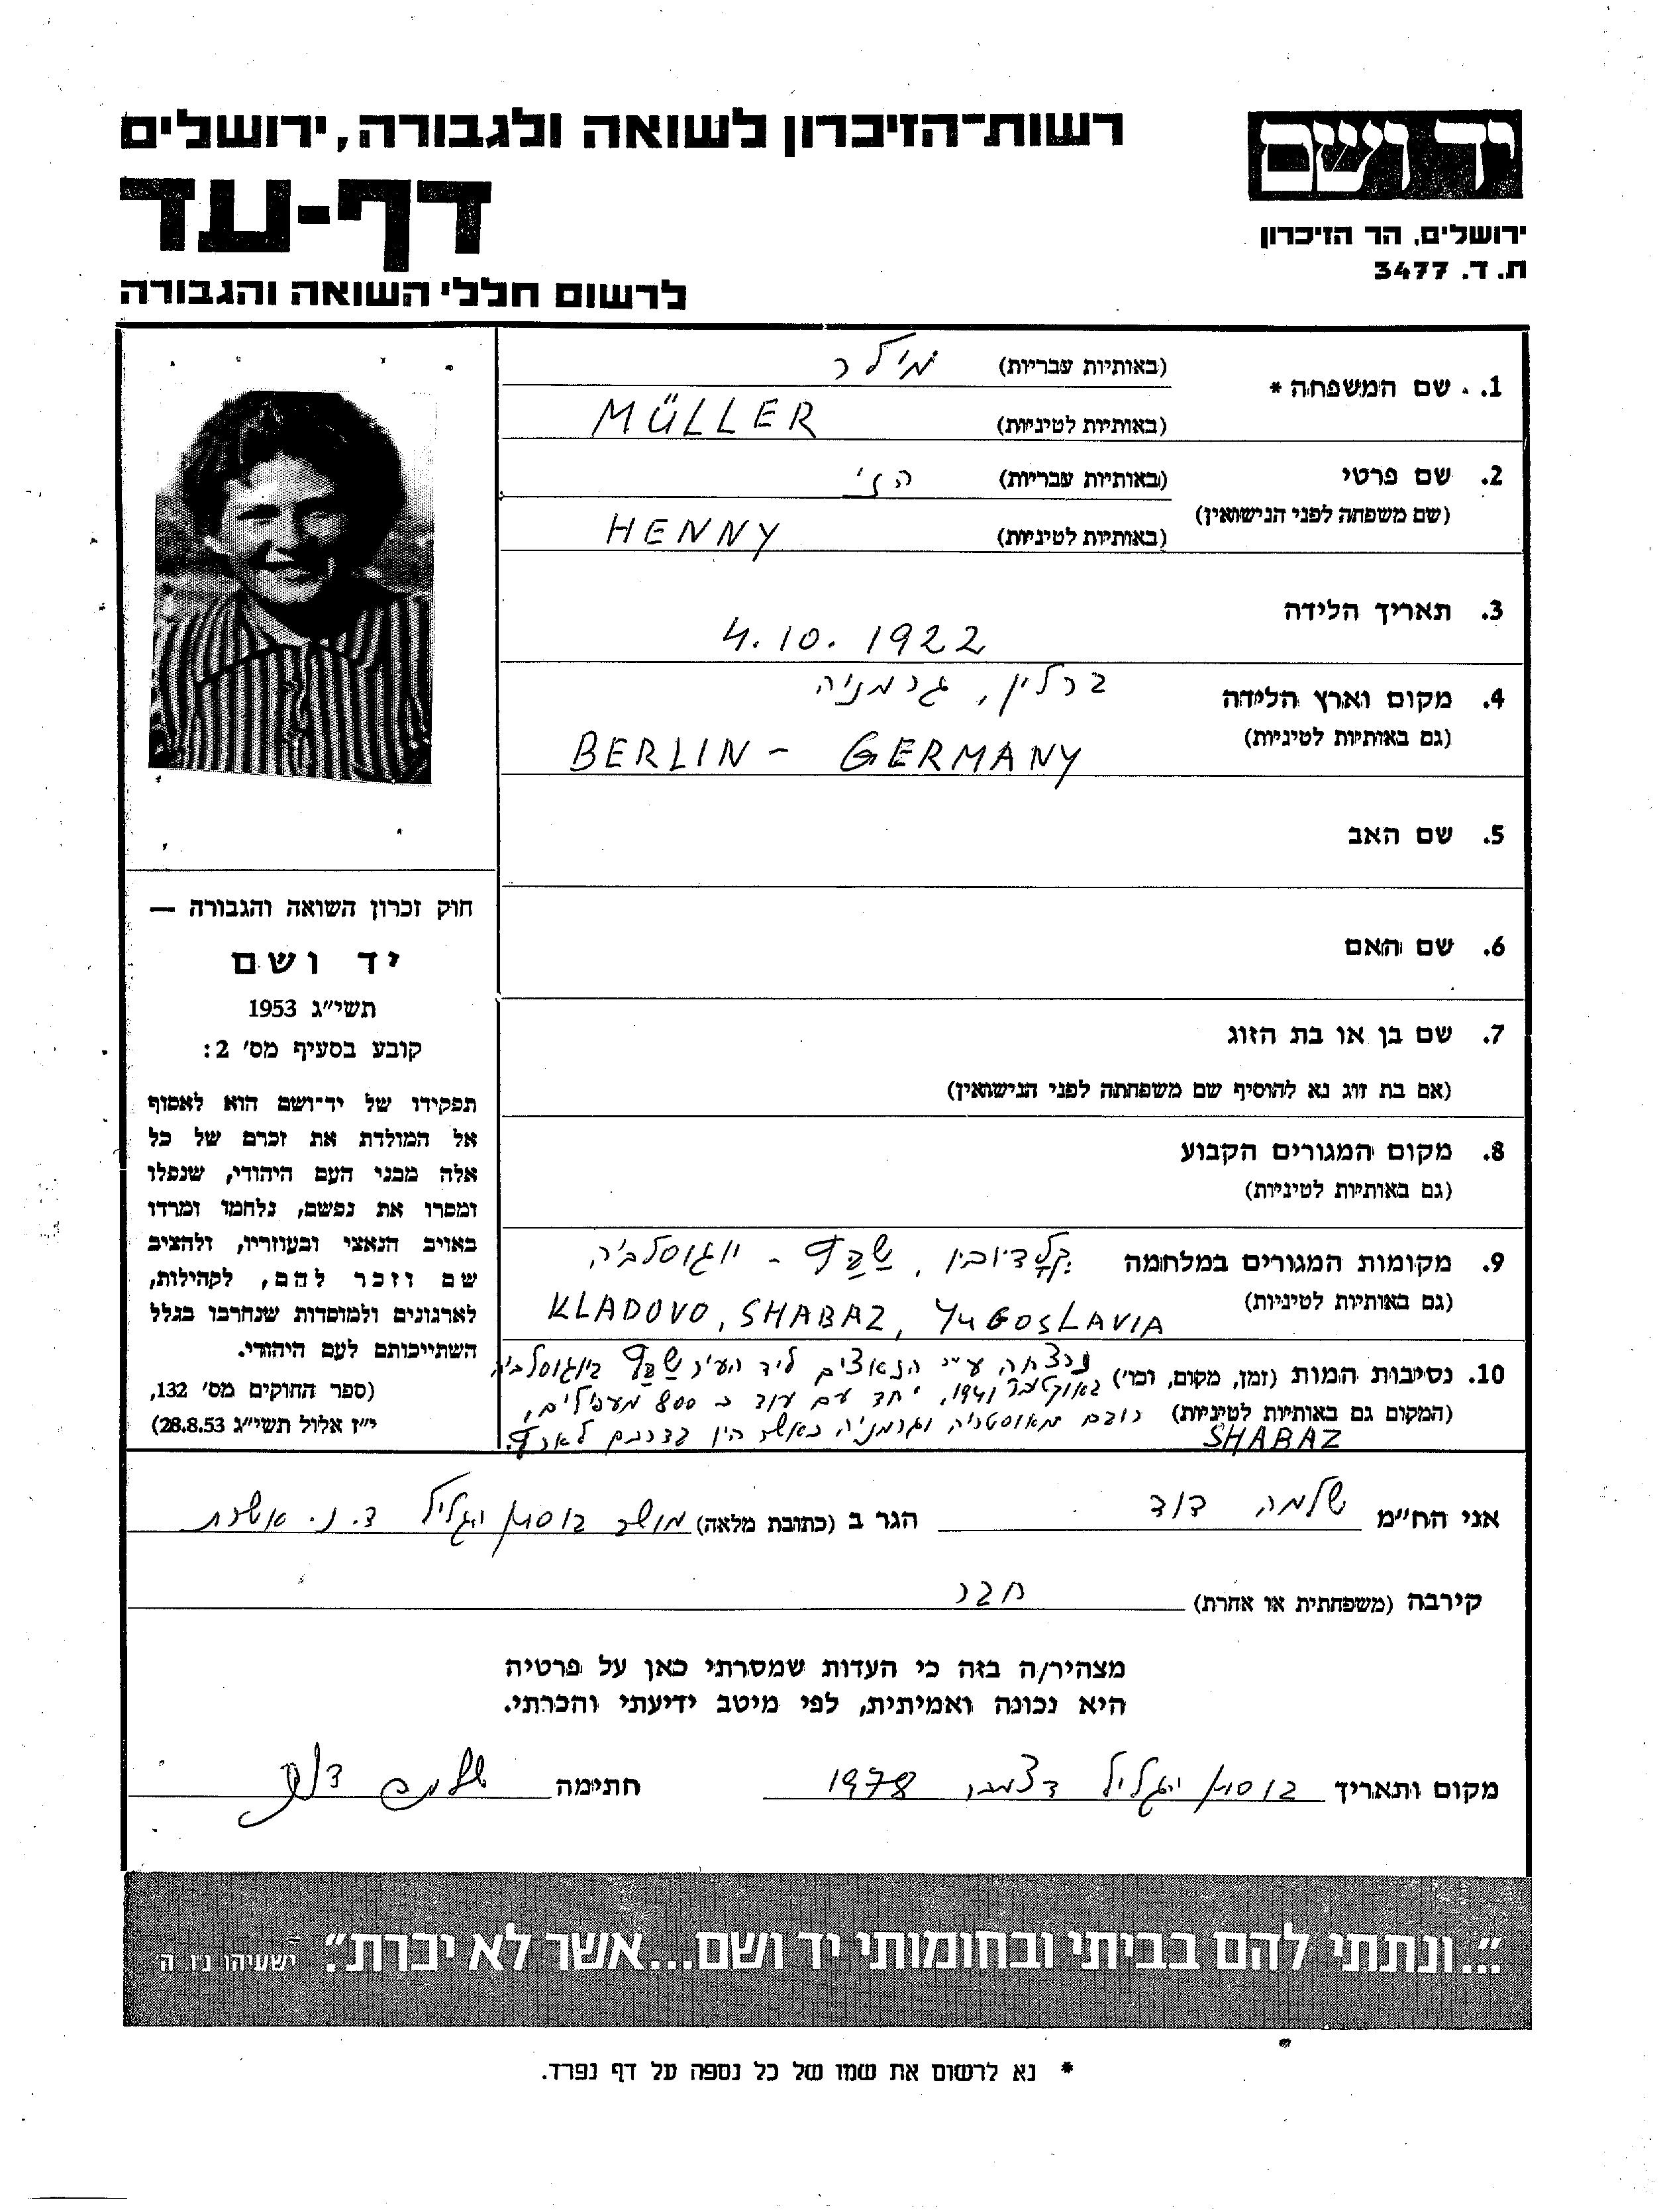 רשות-הזיכרון לשואה ולגבורה, ירושלים
יד ושם
דף-עד
ירושלים, הר הזיכרון
ת. ד. 3477
לרשום חללי השואה והגבורה
1. שם המשפחה *
(באותיות עבריות) מילר
(באותיות לטיניות) MÜLLER
2. שם פרטי
(שם משפחה לפני הנישואין)
(באותיות עבריות) הני
(באותיות לטיניות) HENNY
3. תאריך הלידה
4.10.1922
4. מקום וארץ הלידה ברלין, גרמניה
(גם באותיות לטיניות)
BERLIN - GERMANY
5. שם האב
6. שם האם
7. שם בן או בת הזוג
(אם בת זוג נא להוסיף שם משפחתה לפני הנישואין)
8. מקום המגורים הקבוע
(גם באותיות לטיניות)
9. מקומות המגורים במלחמה
שַבַּץ - יוגוסלביה
(גם באותיות לטיניות)
KLADOVO, SHABAZ, YUGOSLAVIA
10. נסיבות המות (זמן, מקום, וכו')
(המקום גם באותיות לטיניות)
נרצחה ע"י הנאצים ליד העיר שַבַּץ ביוגוסלביה
באוקטובר 1941, יחד עם עוד כ 800 מעפילים,
רובם מאוסטריה וגרמניה כאשר היו בדרכם לארץ.
SHABAZ
חוק זכרון השואה והגבורה —
יד ושם
תשי"ג 1953
קובע בסעיף מס' 2:
תפקידו של יד-ושם הוא לאסוף
אל המולדת את זכרם של כל
אלה מבני העם היהודי, שנפלו
ומסרו את נפשם, נלחמו ומרדו
באויב הנאצי ובעוזריו, ולהציב
שם וזכר להם, לקהילות,
לארגונים ולמוסדות שנחרבו בגלל
השתייכותם לעם היהודי.
(ספר החוקים מס' 132,
י"ז אלול תשי"ג 28.8.53)
אני הח"מ שלמה דוד הגר ב (כתובת מלאה) מושב בוסתן הגליל ד.נ. אשרת
קירבה (משפחתית או אחרת) חבר
מצהיר/ה בזה כי העדות שמסרתי כאן על פרטיה
היא נכונה ואמיתית, לפי מיטב ידיעתי והכרתי.
מקום ותאריך בוסתן הגליל דצמבר 1978 חתימה שלמה דוד
"...ונתתי להם בביתי ובחומותי יד ושם...אשר לא יכרת". ישעיהו נו, ה
* נא לרשום את שמו של כל נספה על דף נפרד.